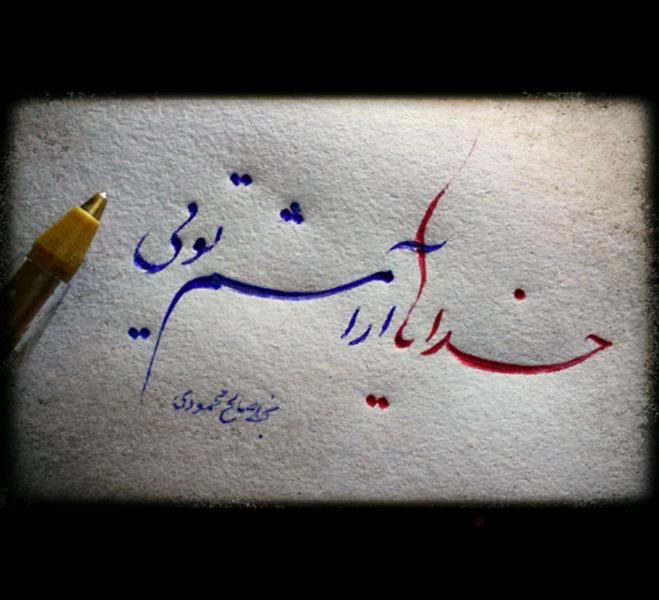 خدایا آرامشم تویی
صالح محمودی